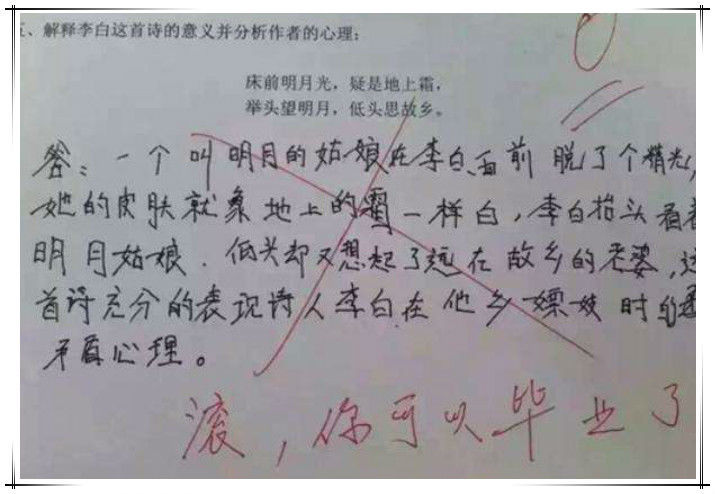 、解释李白这首诗的意义并分析作者的心理：
床前明月光，疑是地上霜，
举头望明月，低头思故乡。
答：一个叫明月的姑娘在李白面前脱了个精光，
她的皮肤就象地上的霜一样白，李白抬头看着
明月姑娘．低头却又想起了远在故乡的老婆，这
首诗充分的表现诗人李白在他乡嫖妓时的
矛盾心理。
滚，你可以毕业了